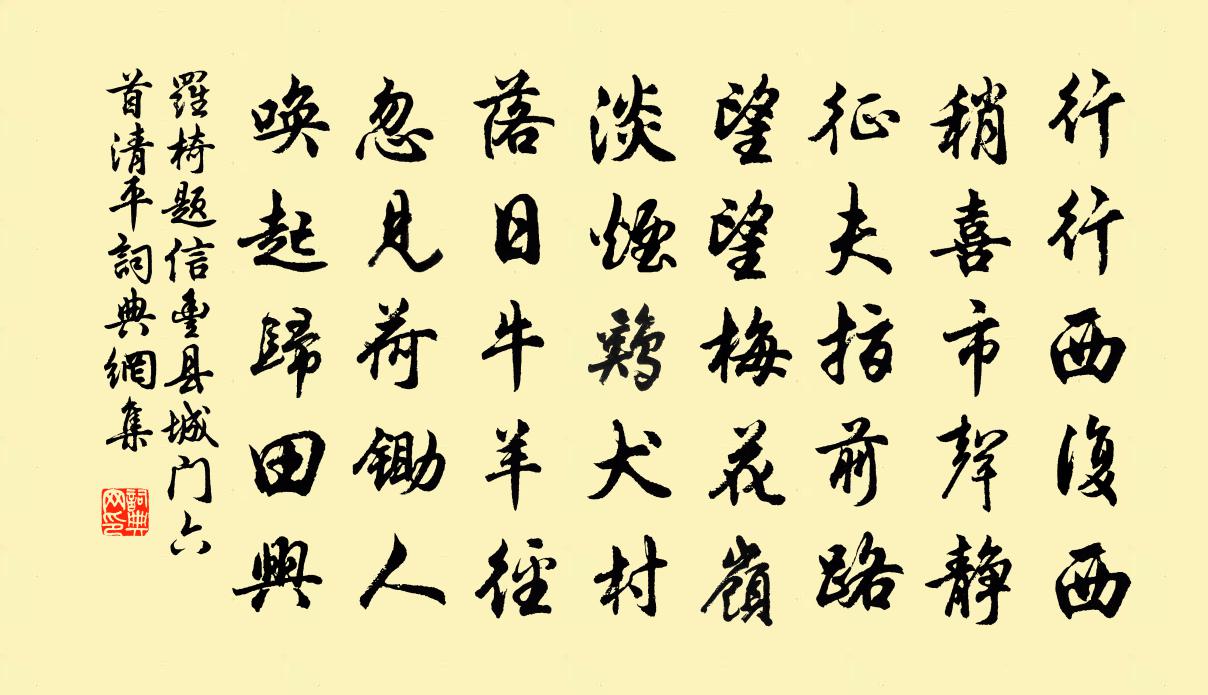 行行西復西
稍喜市聲静
征夫指前路
望望梅花嶺
淡煙鷄犬村
落日牛羊徑
忽見荷鋤人
喚起歸田興
羅椅题信豐县城门六
首清平詞典網集
詞典
网印